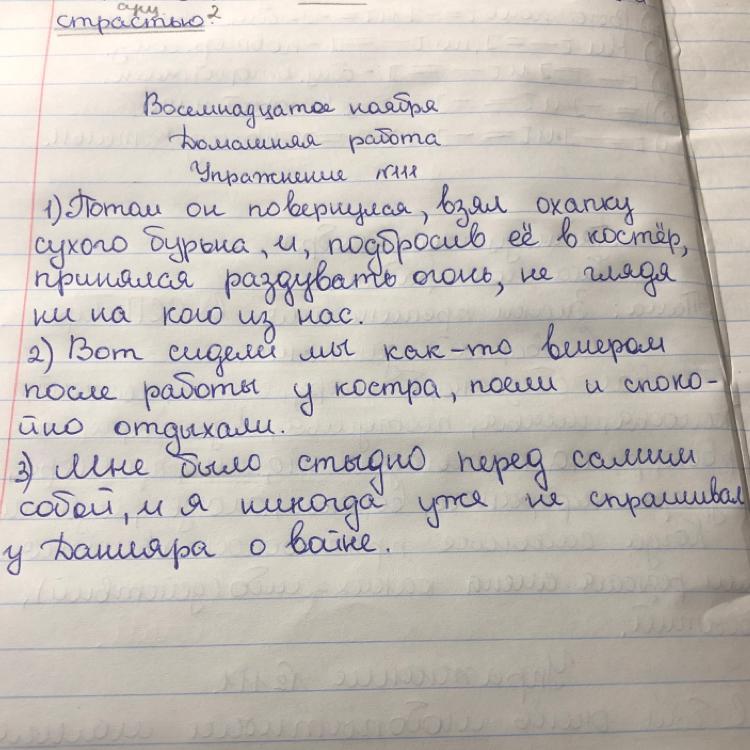 сущ.
страстью?²
Восемнадцатое ноября
Домашняя работа
Упражнение №111
1) Потом он повернулся, взял охапку
сухого бурьна, и, подбросив её в костёр,
принялся раздувать огонь, не глядя
ни на кого из нас.
2) Вот сидели мы как-то вечером
после работы у костра, поели и споко-
йно отдыхали.
3) Мне было стыдно перед самим
собой, и я никогда уже не спрашивал
у Данияра о войне.